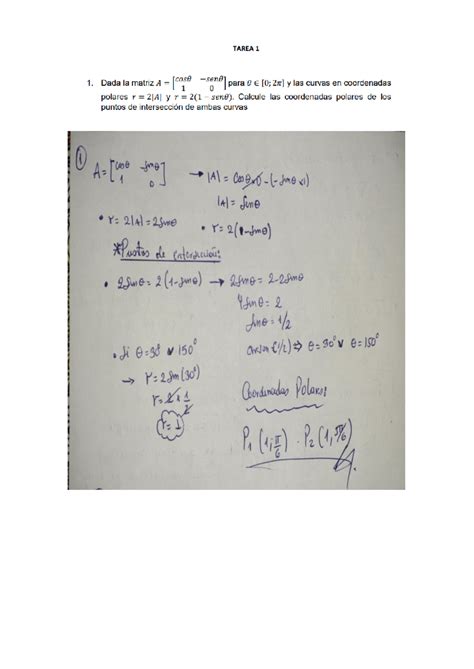 TAREA 1
1. Dada la matriz A = [cosθ −senθ
1 0] para θ ∈ [0; 2π] y las curvas en coordenadas
polares r = 2|A| y r = 2(1 − senθ). Calcule las coordenadas polares de los
puntos de intersección de ambas curvas
①
A = [cosθ -senθ
1 0] → |A| = Cosθx0 - (-senθx1)
|A| = Senθ
• r = 2|A| = 2senθ • r = 2(1-senθ)
*Puntos de intersección:
• 2senθ = 2(1-senθ) → 2senθ = 2-2senθ
4senθ = 2
senθ = 1/2
• Si θ=30° v 150° arcsen(1/2) ⇒ θ=30° v θ=150°
→ r = 2sen(30°)
r = 2x1/2
r = 1
Coordenadas Polares
P1 (1; π/6) . P2 (1; 5π/6)